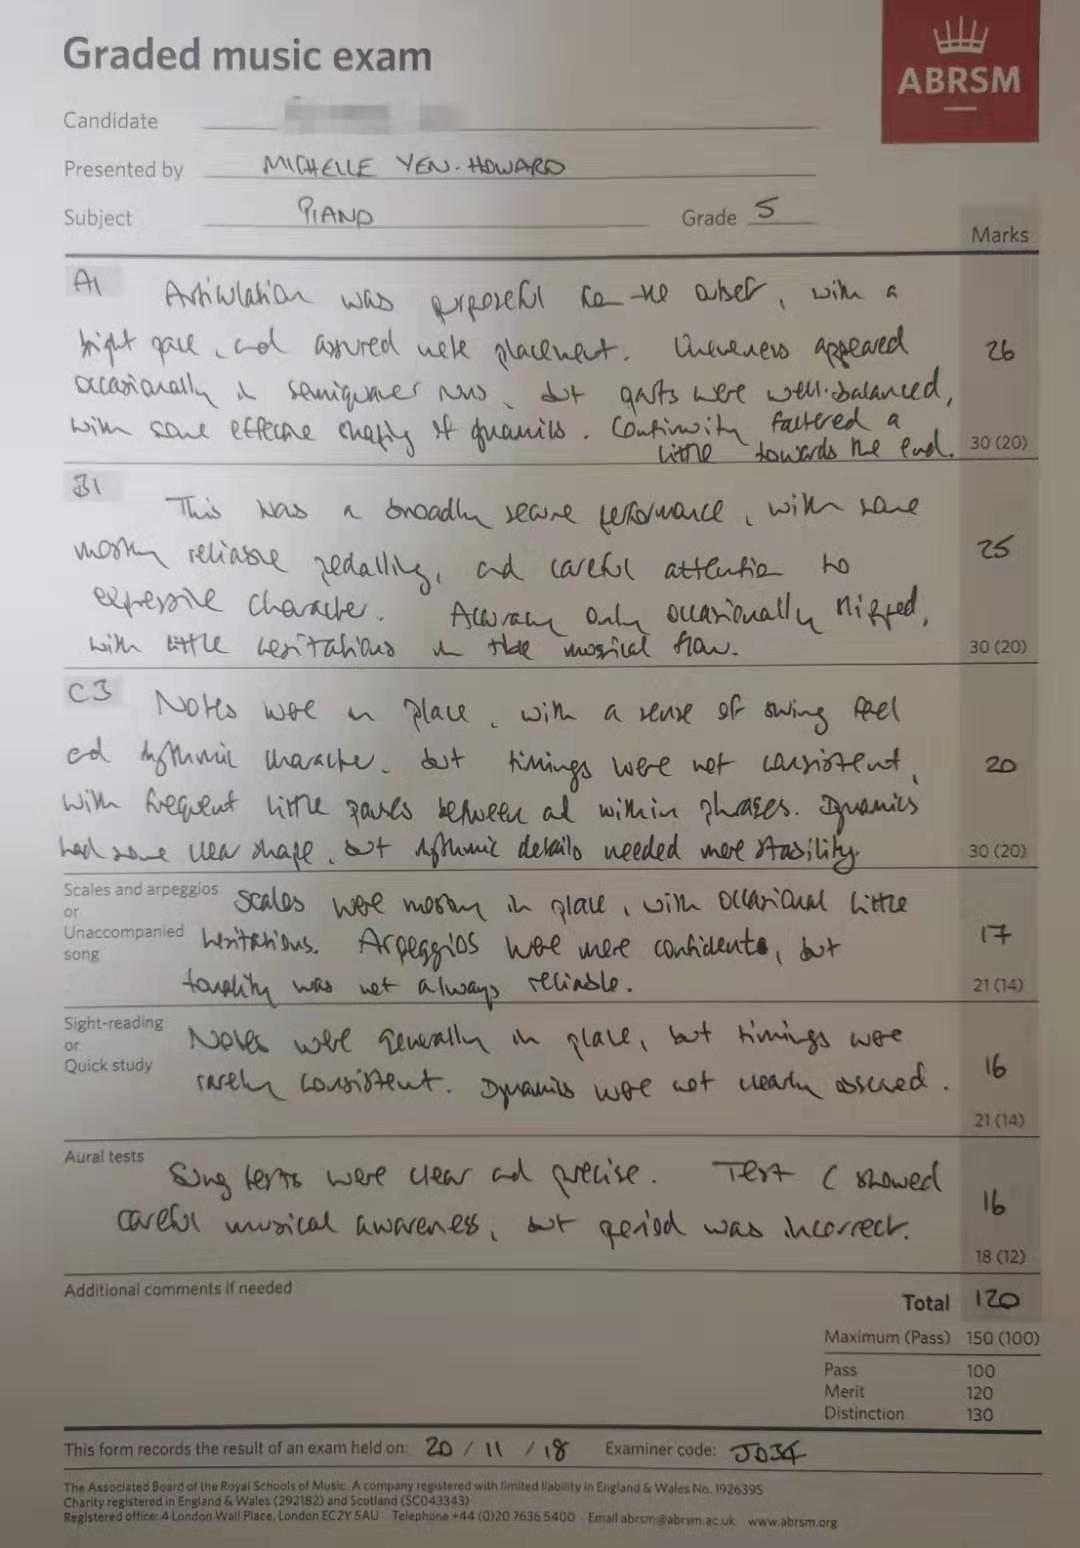 Graded music exam
ABRSM
Candidate
Presented by MICHELLE YEN-HOWARD
Subject PIANO Grade 5
Marks
A1 Articulation was purposeful from the outset, with a
bright pace, and assured note placement. Unevenness appeared 26
occasionally in semiquaver runs, but parts were well-balanced,
with some effective shaping of dynamics. Continuity faltered a
little towards the end. 30 (20)
B1
This was a broadly secure performance, with some
mostly reliable pedalling, and careful attention to 25
expressive character. Accuracy only occasionally slipped,
with little hesitations in the musical flow. 30 (20)
C3 Notes were in place, with a sense of swing feel
and rhythmic character, but timings were not consistent, 20
with frequent little pauses between and within phrases. Dynamics
had some clear shape, but rhythmic details needed more stability. 30 (20)
Scales and arpeggios
or
Unaccompanied
song
Scales were mostly in place, with occasional little
hesitations. Arpeggios were more confident, but 17
tonality was not always reliable. 21 (14)
Sight-reading
or
Quick study
Notes were generally in place, but timings were
rarely consistent. Dynamics were not clearly observed. 16
21 (14)
Aural tests
Sung tests were clear and precise. Test C showed
careful musical awareness, but period was incorrect. 16
18 (12)
Additional comments if needed
Total 120
Maximum (Pass) 150 (100)
Pass 100
Merit 120
Distinction 130
This form records the result of an exam held on: 20 / 11 / 18 Examiner code: JD34
The Associated Board of the Royal Schools of Music. A company registered with limited liability in England & Wales No. 1926395
Charity registered in England & Wales (292182) and Scotland (SC043343)
Registered office: 4 London Wall Place, London EC2Y 5AU Telephone +44 (0)20 7636 5400 Email abrsm@abrsm.ac.uk www.abrsm.org